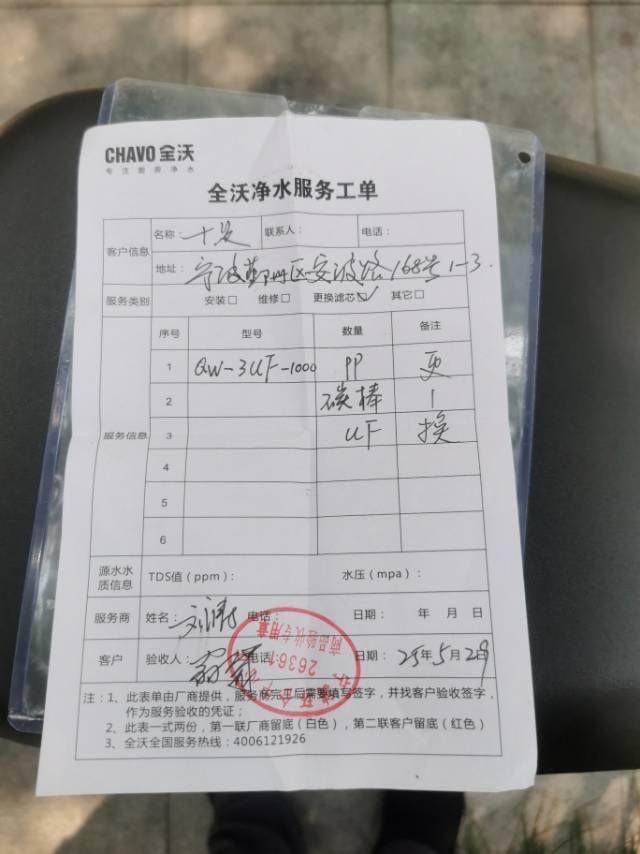 CHAVO 全沃
专注厨房净水
全沃净水服务工单
客户信息 名称： 联系人： 电话：
地址：宁波鄞州区安波路168号1-3.
服务类别 安装□ 维修□ 更换滤芯☑ 其它□
服务信息 序号 型号 数量 备注
1 QW-3UF-1000 PP 更
2 碳棒 1
3 UF 换
4
5
6
源水水质信息 TDS值（ppm）： 水压（mpa）：
服务商 姓名：刘 电话： 日期： 年 月 日
客户 验收人： 电话 日期：25年5月29日
商品验收专用章
26361
注：1、此表单由厂商提供，服务商完后需要填写签字，并找客户验收签字，
作为服务验收的凭证；
2、此表一式两份，第一联厂商留底（白色），第二联客户留底（红色）
3、全沃全国服务热线：4006121926